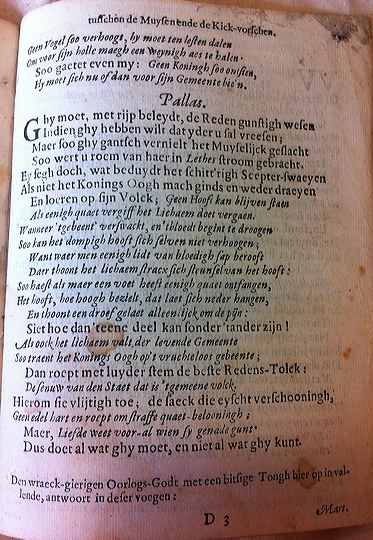 tusschen de Muysen ende de Kick-vorschen.
Geen Vogel soo verhoogt, hy moet ten lesten dalen
Om voor sijn holle maegh een weynigh aes te halen.
Soo gaetet even my: Geen Koningh soo ontsien,
Hy moet sich nu of dan voor sijn Gemeente bie'n.
Pallas.
Ghy moet, met rijp beleydt, de Reden gunstigh wesen
Indien ghy hebben wilt dat yder u sal vreesen;
Maer soo ghy gantsch vernielt het Muyselijck geslacht
Soo wert u roem van haer in Lethes stroom gebracht.
Ey segh doch, wat beduydt het schitt'righ Scepter-swaeyen
Als niet het Konings Oogh mach ginds en weder draeyen
En loeren op sijn Volck; Geen Hooft kan blijven staen
Als eenigh quaet vergift het Lichaem doet vergaen.
Wanneer 'tgebeent' verswackt, en 'tbloedt begint te droogen
Soo kan het dompigh hooft sich selven niet verhoogen;
Want waer men eenigh lidt van bloedigh sap berooft
Daer thoont het lichaem stracx sich steunsel van het hooft:
Soo haest als maer een voet heeft eenigh quaet ontfangen,
Het hooft, hoe hoogh bezielt, dat laet sich neder hangen,
En thoont een droef gelaet alleenlijck om de pijn:
Siet hoe dan 'teene deel kan sonder 'tander zijn!
Als oock het lichaem valt, der levende Gemeente
Soo traent het Konings Oogh op 't vruchteloos gebeente;
Dan roept met luyder stem de beste Redens-Tolck:
De senuw van den Staet dat is 'tgemeene volck,
Hierom sie vlijtigh toe; de saeck die eyscht verschooningh,
Geen edel hart en roept om straffe quaet-belooningh;
Maer, Liefde weet voor-al wien sy genade gunt
Dus doet al wat ghy moet, en niet al wat ghy kunt.
Den wraeck-gierigen Oorlogs-Godt met een bitsige Tongh hier op in val-
lende, antwoort in deser voegen:
D 3
Mart.